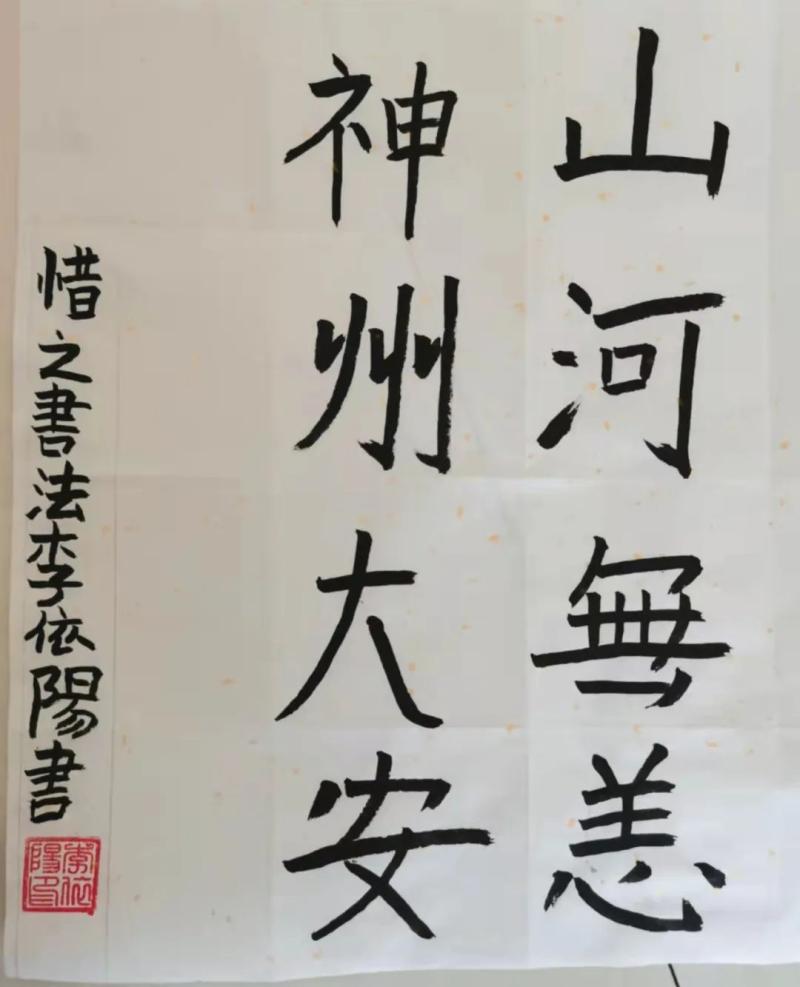 山河無恙
神州大安
惜之書法李依陽書
李依陽印